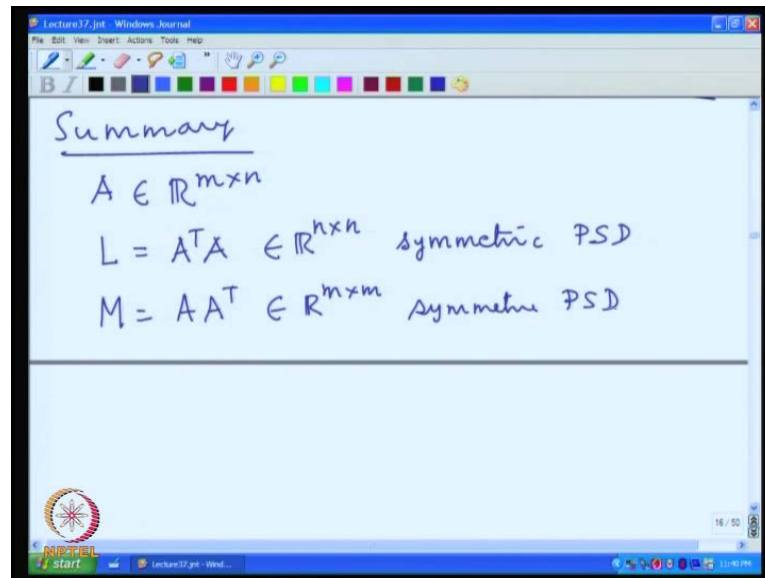 Lecture37.jnt - Windows Journal
File Edit View Insert Actions Tools Help
B I
Summary
A ∈ ℝ^{m×n}
L = A^T A ∈ ℝ^{n×n} symmetric PSD
M = A A^T ∈ ℝ^{m×m} symmetric PSD
16 / 50
NPTEL
start Lecture37.jnt - Wind... 11:40 PM